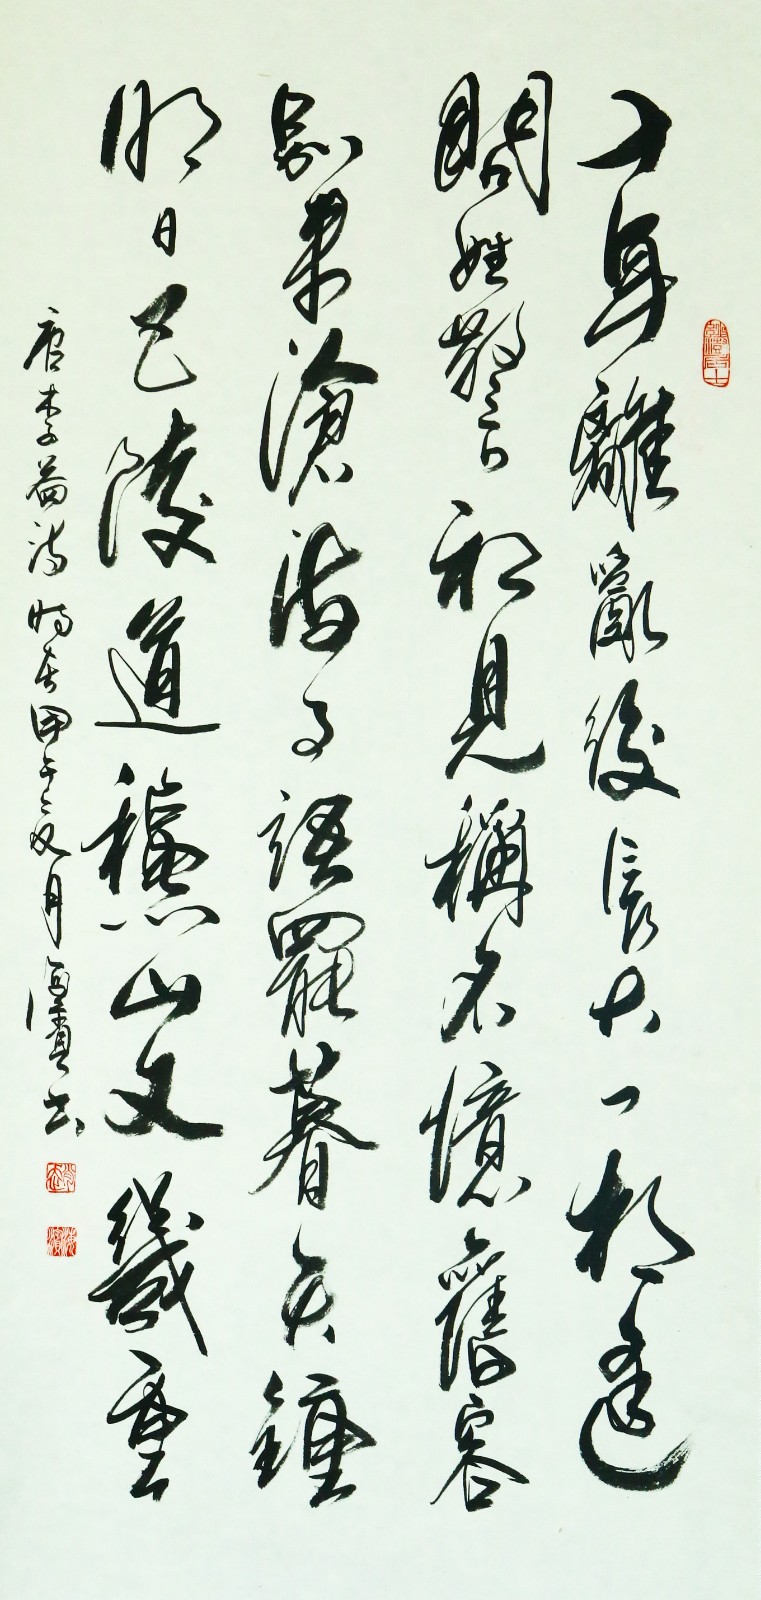 十年離亂後長大一相逢
問姓警初見稱名憶舊容
別來滄海事語罷暮天鐘
明日巴陵道秋山又幾重
唐李益詩時在甲午之夏月海濱書